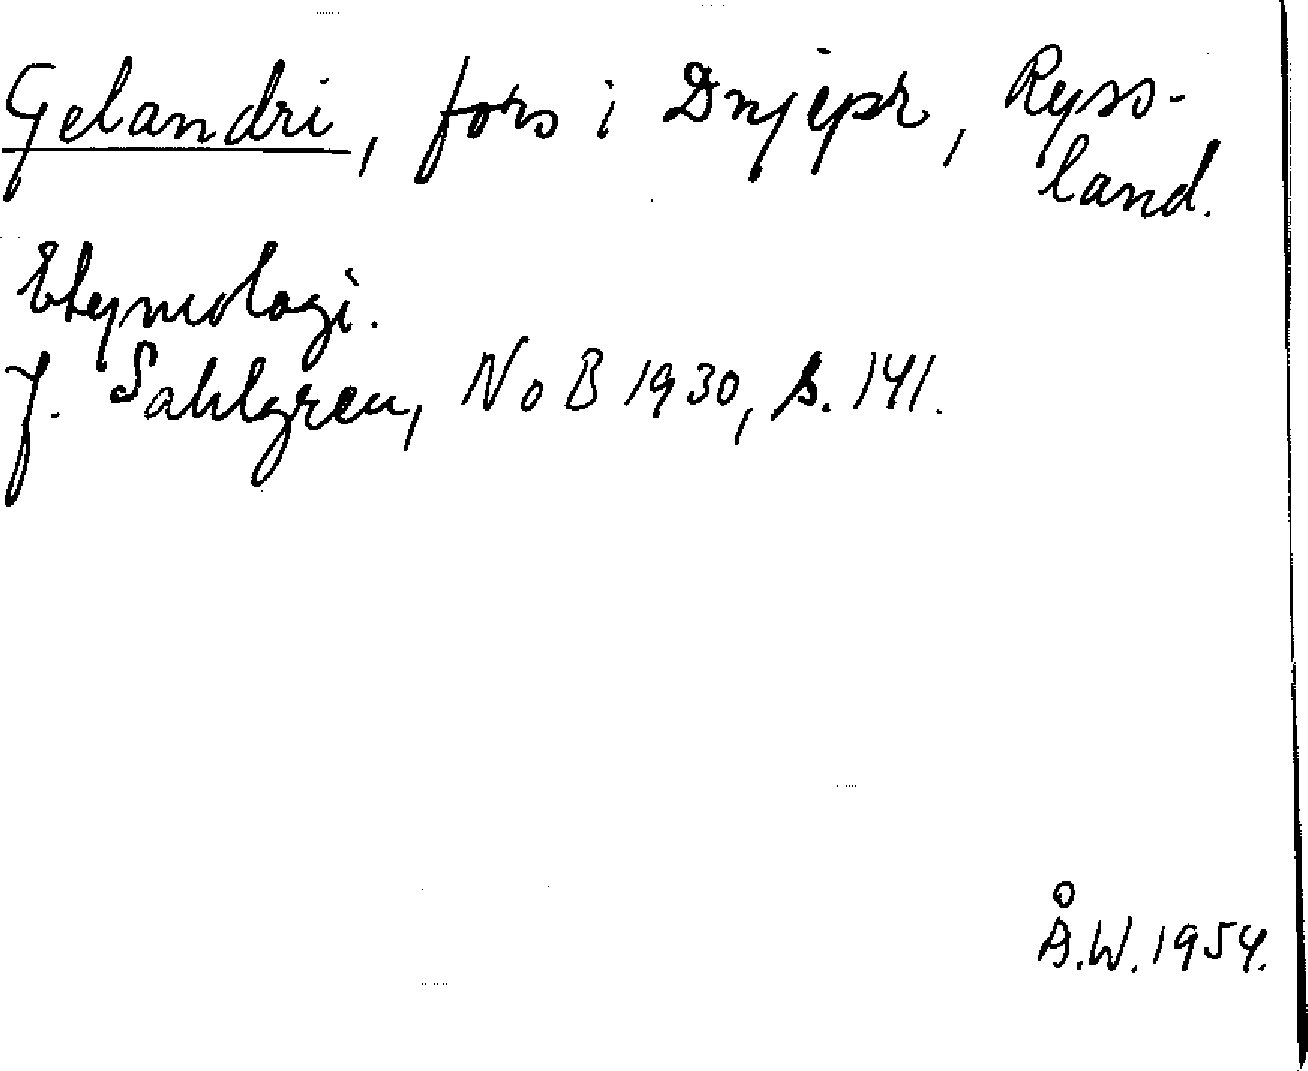 Gelandri, fors i Dnjepr, Ryss-
land.
Etymologi.
J. Sahlgren, NoB 1930, s. 141.
Å.W. 1954.